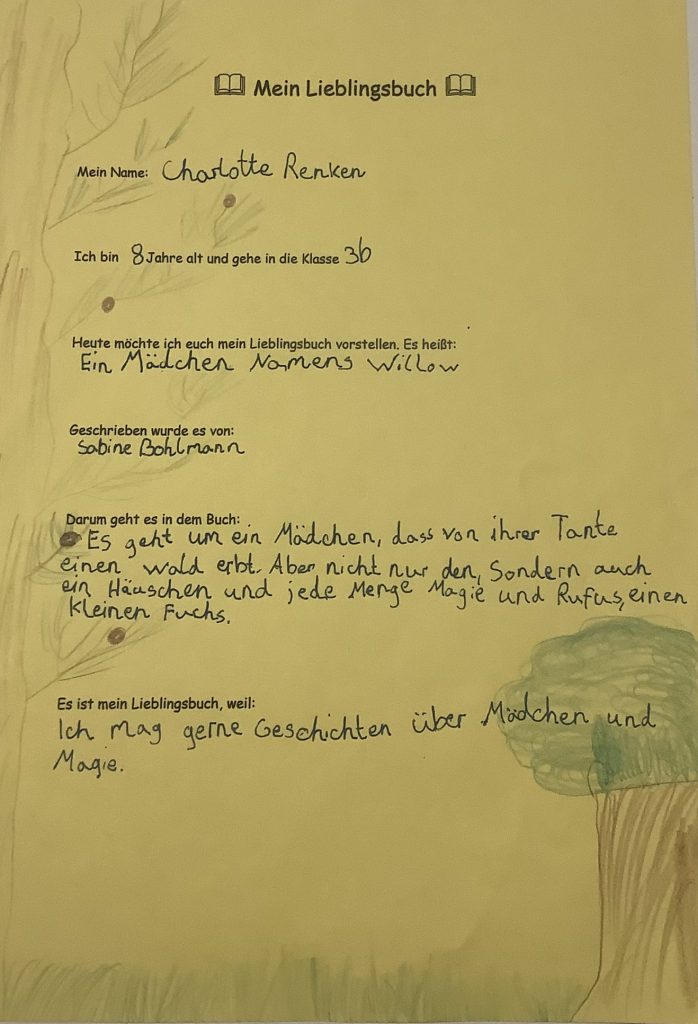 Mein Lieblingsbuch
Mein Name: Charlotte Renken
Ich bin 8 Jahre alt und gehe in die Klasse 3b
Heute möchte ich euch mein Lieblingsbuch vorstellen. Es heißt:
Ein Mädchen Namens Willow
Geschrieben wurde es von:
Sabine Bohlmann
Darum geht es in dem Buch:
Es geht um ein Mädchen, dass von ihrer Tante
einen Wald erbt. Aber nicht nur den, Sondern auch
ein Häuschen und jede Menge Magie und Rufus, einen
kleinen Fuchs.
Es ist mein Lieblingsbuch, weil:
Ich mag gerne Geschichten über Mädchen und
Magie.